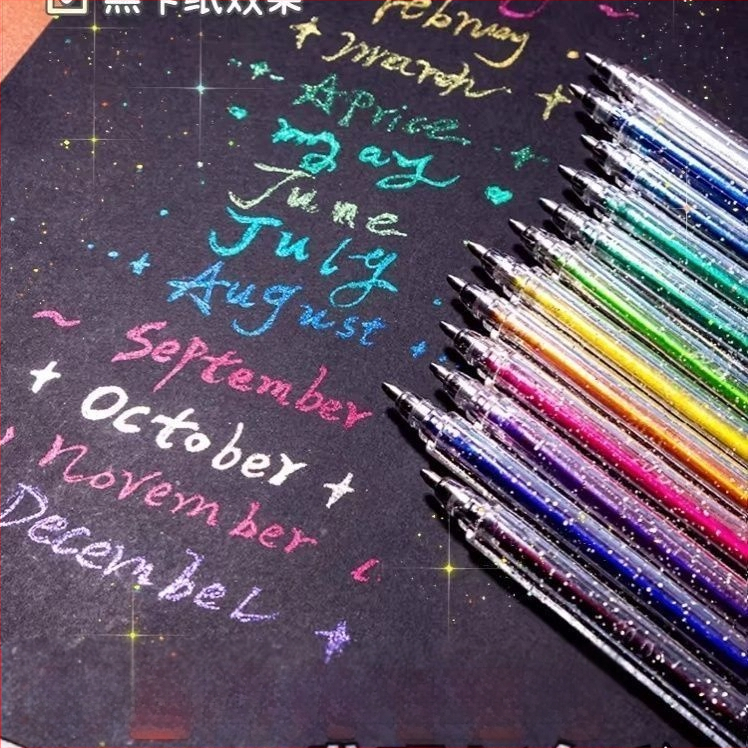 黑卡纸效果
February
march
Aprice
may
June
July
August
September
October
november
December